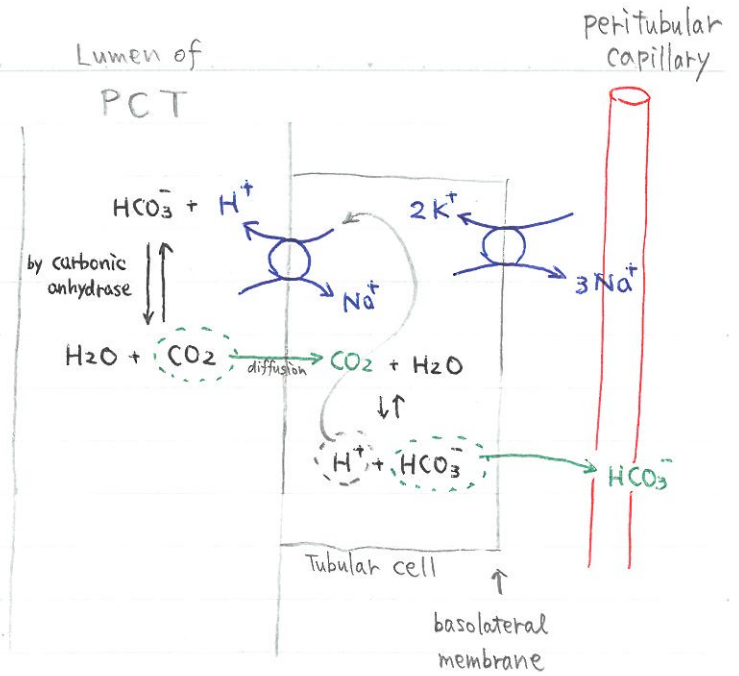 Lumen of
PCT
peritubular
capillary
HCO₃⁻ + H⁺
2K⁺
by carbonic
anhydrase
Na⁺
3Na⁺
H2O + CO2
diffusion
CO2 + H2O
H⁺ + HCO₃⁻
HCO₃⁻
Tubular cell
basolateral
membrane